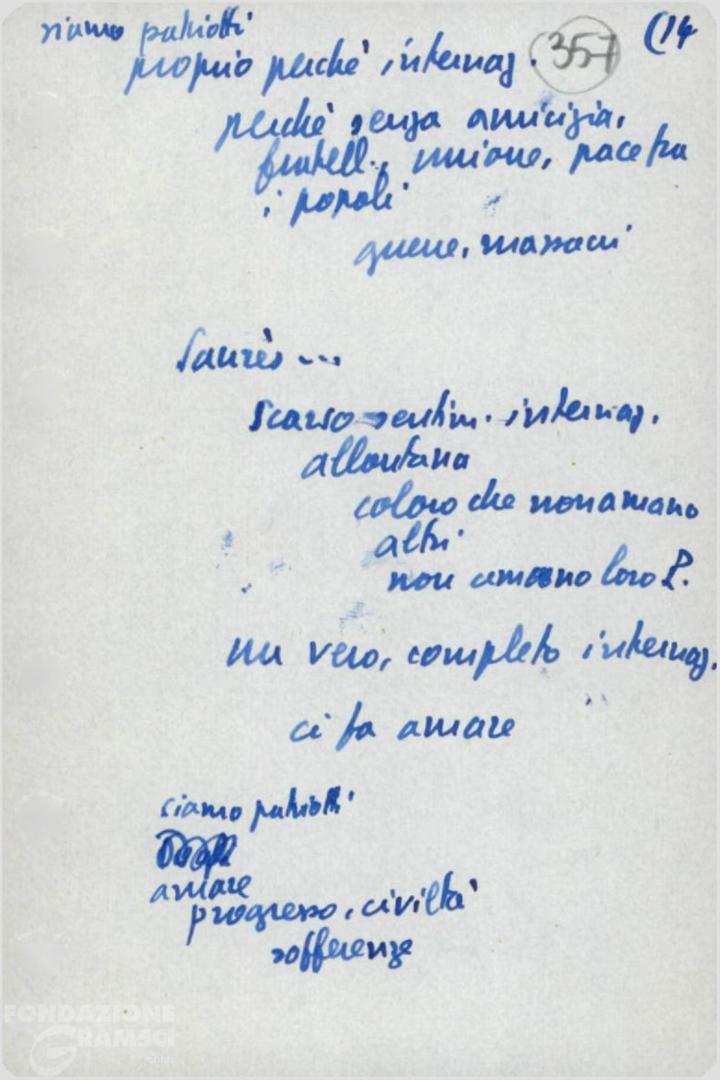 siamo patriotti
(14
357
proprio perché internaz.
perché senza amicizia,
fratell., unione, pace tra
i popoli
guerre, massacri
Jaurès ...
Scarso sentim. internaz.
allontana
coloro che non amano
altri
non amano loro P.
un vero, completo internaz.
ci fa amare
siamo patriotti
amare
progresso, civiltà
sofferenze
FONDAZIONE
GRAMSCI